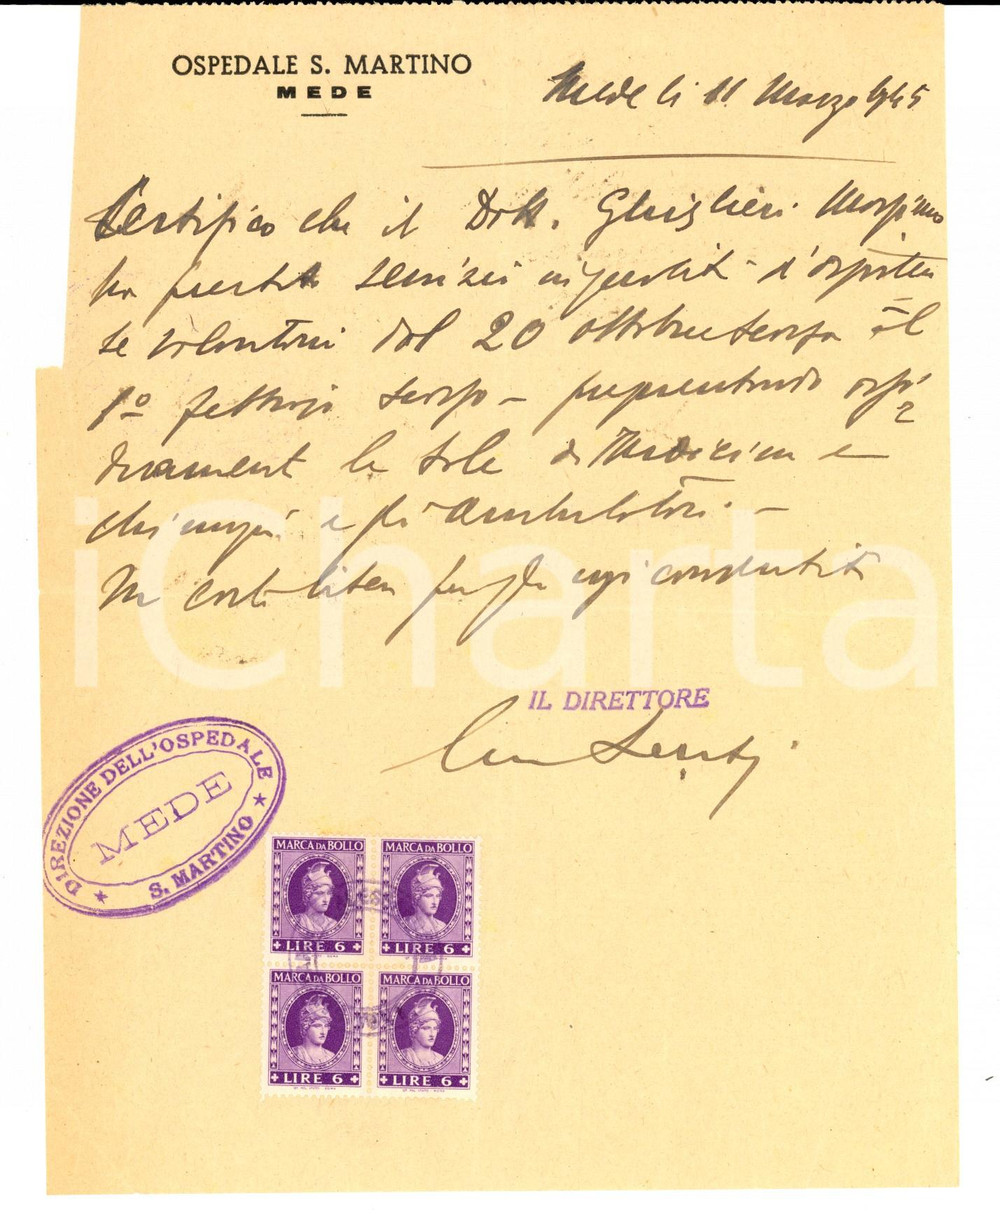 OSPEDALE S. MARTINO
MEDE
Mede li 11 Marzo 1945
Certifico che il Dott. Ghiglieri
ha prestato servizio in qualità d'assisten
te volontario dal 20 ottobre scorso al
1º febbraio scorso - frequentando assi
duamente le sale di Medicina e
chirurgia e gli Ambulatori. -
In carta libera per gli usi consentiti
IL DIRETTORE
DIREZIONE DELL'OSPEDALE
MEDE
S. MARTINO
MARCA DA BOLLO MARCA DA BOLLO
LIRE 6 LIRE 6
MARCA DA BOLLO MARCA DA BOLLO
LIRE 6 LIRE 6
iCharta